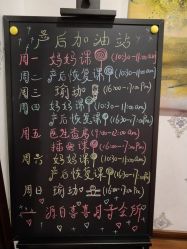 产后加油站
周一 妈妈课 (10:30-11:00am)
周二 产后恢复课 (10:30-11:00am)
周三 瑜动 (16:00-17:00pm)
周四 妈妈课 (10:30-11:00am)
产后恢复课 (16:00-17:00pm)
周五
插花课 (16:00-17:00pm)
周六 妈妈课 (10:30-11:00am)
产后恢复课 (16:00-17:00pm)
周日 瑜动 (16:00-17:00pm)
喜喜月子会所